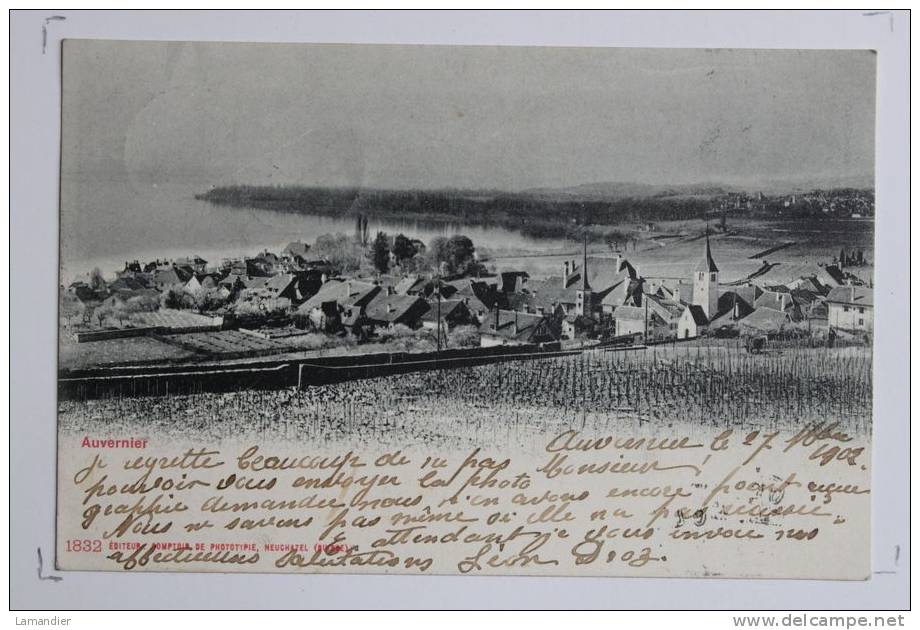 Auvernier
Auvernier le 27 1902
Monsieur!
Je regrette beaucoup de ne pas
pouvoir vous envoyer la photo
graphie demandée nous n'en avons encore point reçue
Nous ne savons pas même si elle n'a pas réussie
En attendant je vous envoie nos
affectueuses salutations Léon Droz.
1832 ÉDITEUR: COMPTOIR DE PHOTOTYPIE, NEUCHATEL (SUISSE)
Lamandier
www.delcampe.net